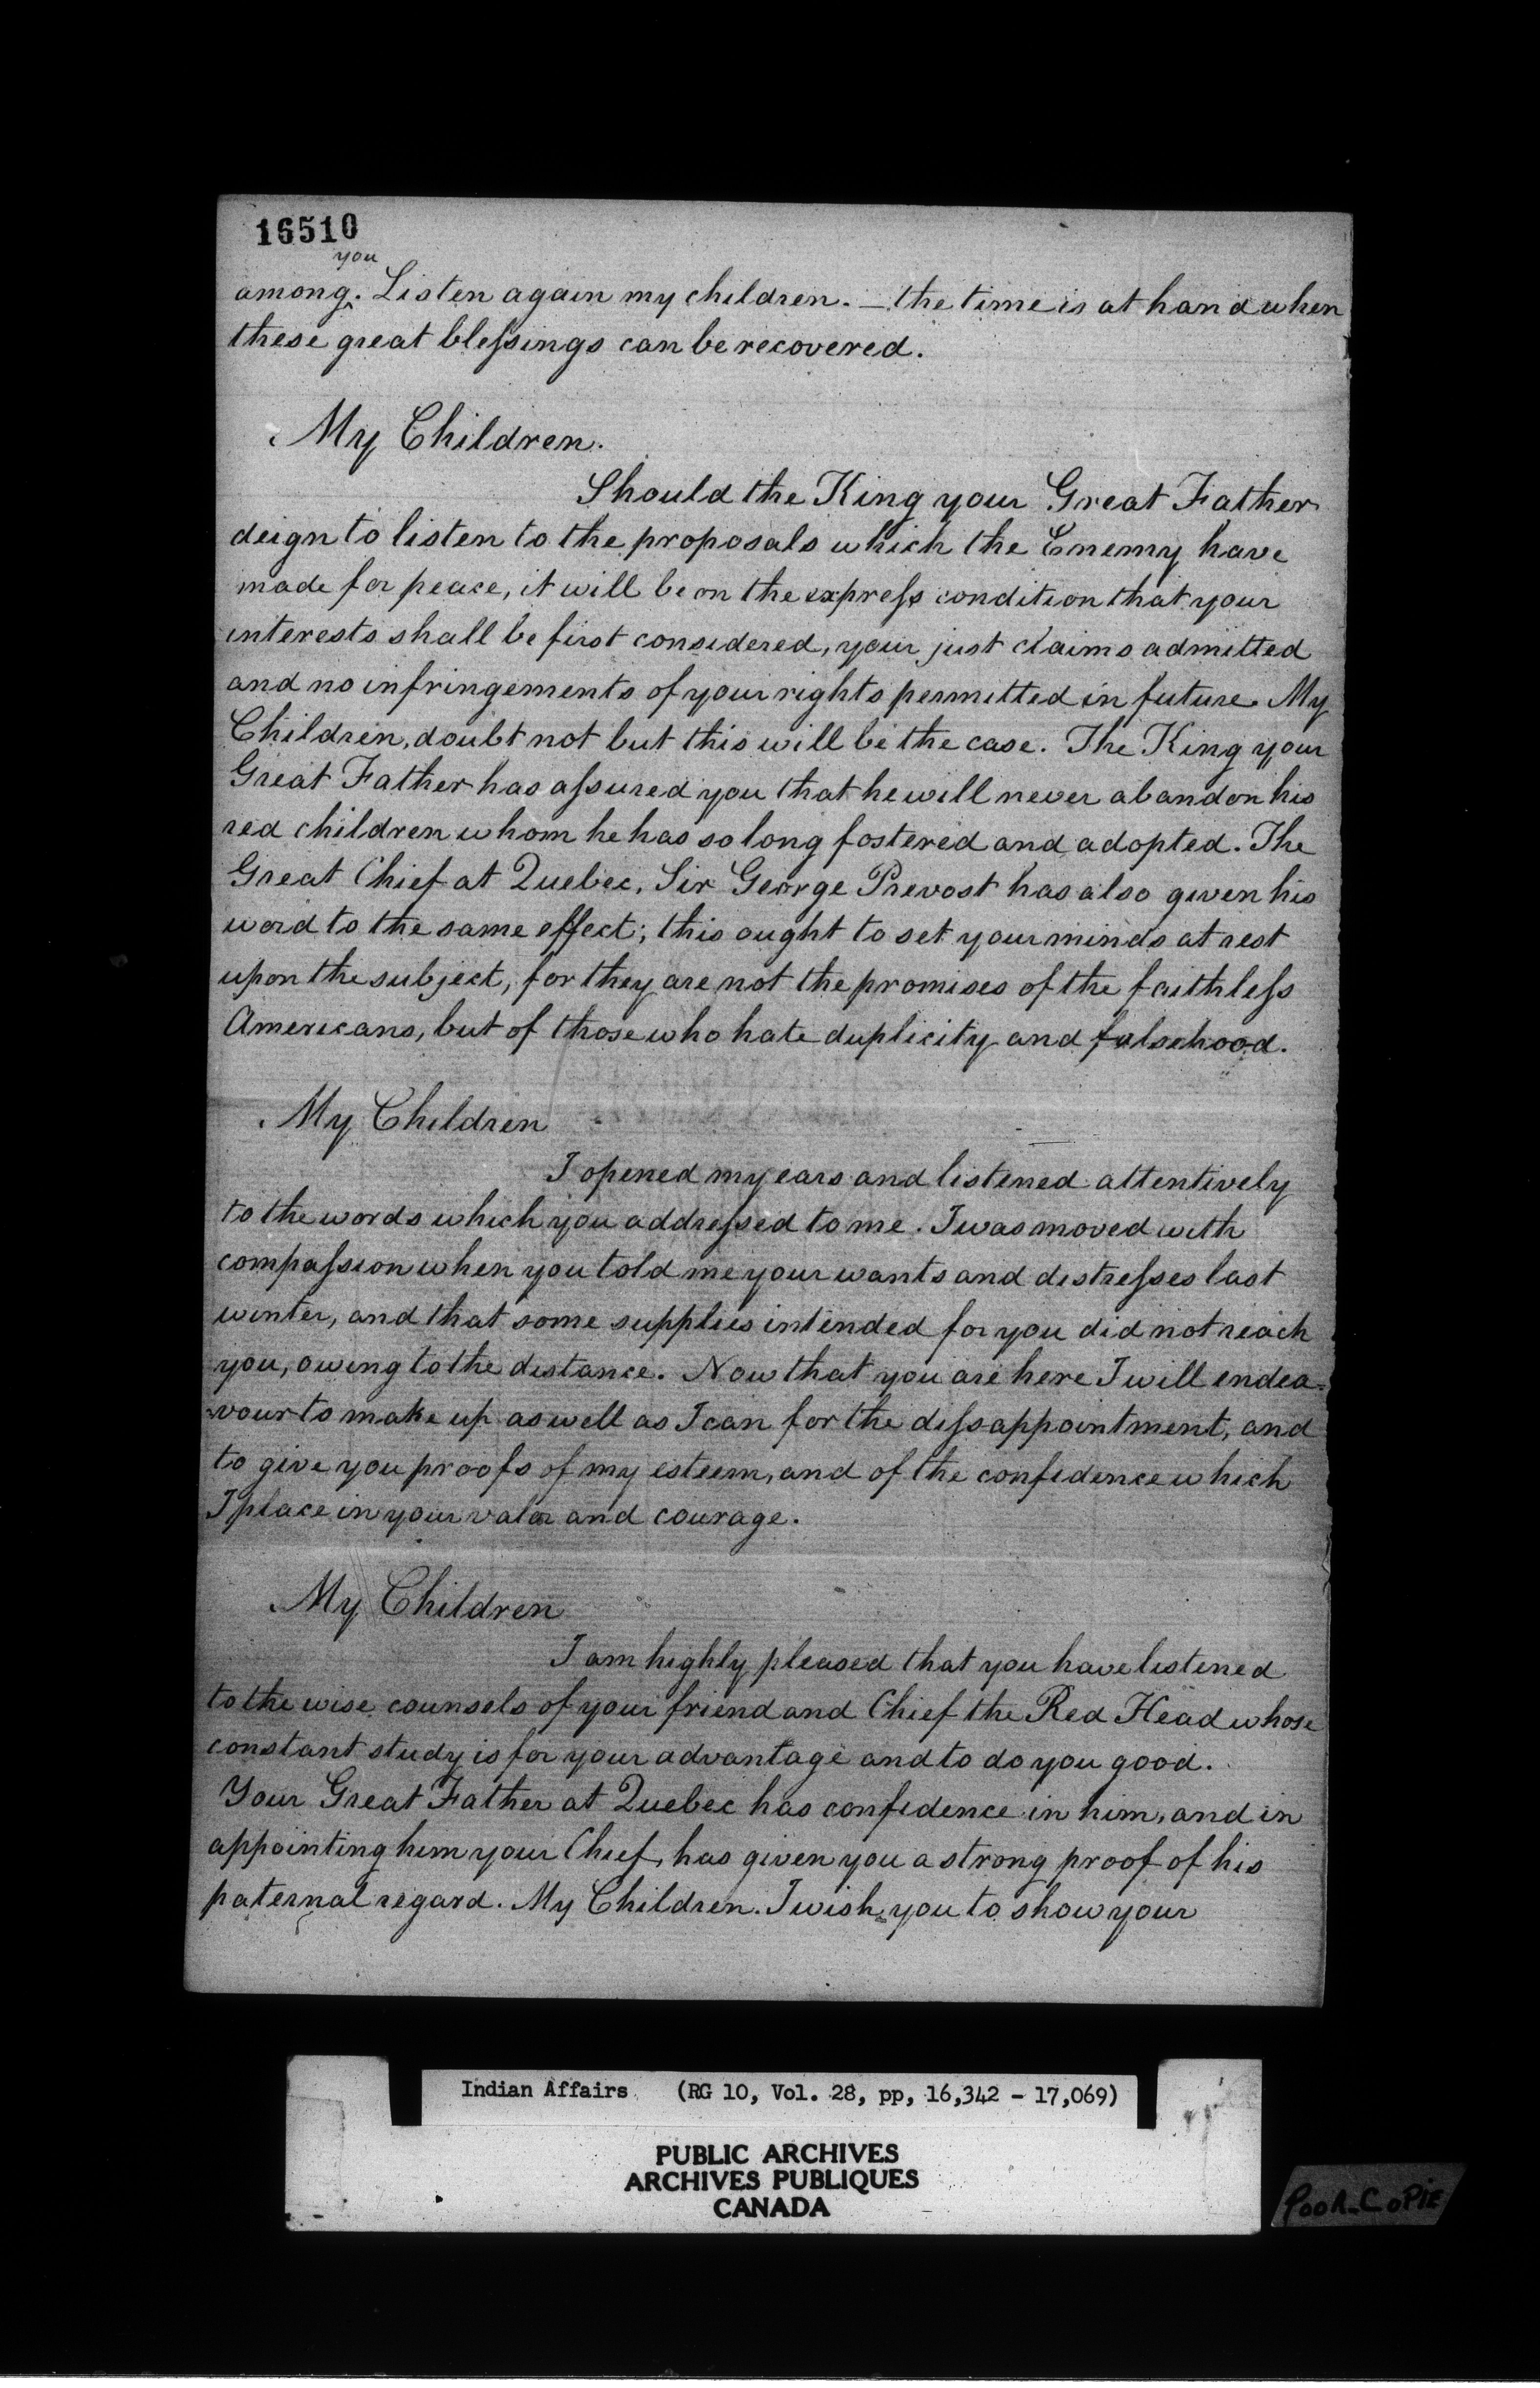 16510
you
among. Listen again my children. – the time is at hand when
these great blessings can be recovered.
My Children.
Should the King your Great Father
deign to listen to the proposals which the Enemy have
made for peace, it will be on the express condition that your
interests shall be first considered, your just claims admitted
and no infringements of your rights permitted in future. My
Children, doubt not but this will be the case. The King your
Great Father has assured you that he will never abandon his
red children whom he has so long fostered and adopted. The
Great Chief at Quebec, Sir George Prevost has also given his
word to the same effect; this ought to set your minds at rest
upon the subject, for they are not the promises of the faithless
Americans, but of those who hate duplicity and falsehood.
My Children
I opened my ears and listened attentively
to the words which you addressed to me. I was moved with
compassion when you told me your wants and distresses last
winter, and that some supplies intended for you did not reach
you, owing to the distance. Now that you are here I will endea-
-vour to make up as well as I can for the dissappointment, and
to give you proofs of my esteem, and of the confidence which
I place in your valor and courage.
My Children
I am highly pleased that you have listened
to the wise counsels of your friend and Chief the Red Head whose
constant study is for your advantage and to do you good.
Your Great Father at Quebec has confidence in him, and in
appointing him your Chief, has given you a strong proof of his
paternal regard. My Children. I wish you to show your
Indian Affairs (RG 10, Vol. 28, pp, 16,342 - 17,069)
PUBLIC ARCHIVES
ARCHIVES PUBLIQUES
CANADA
POOR-COPIE